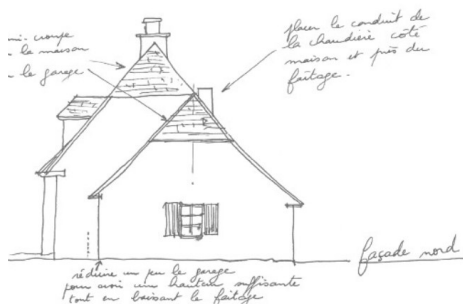 mi-croupe
la maison
le garage
placer le conduit de
la chaudière côté
maison et près du
faîtage.
façade nord
réduire un peu le garage
pour avoir une hauteur suffisante
tout en baissant le faîtage